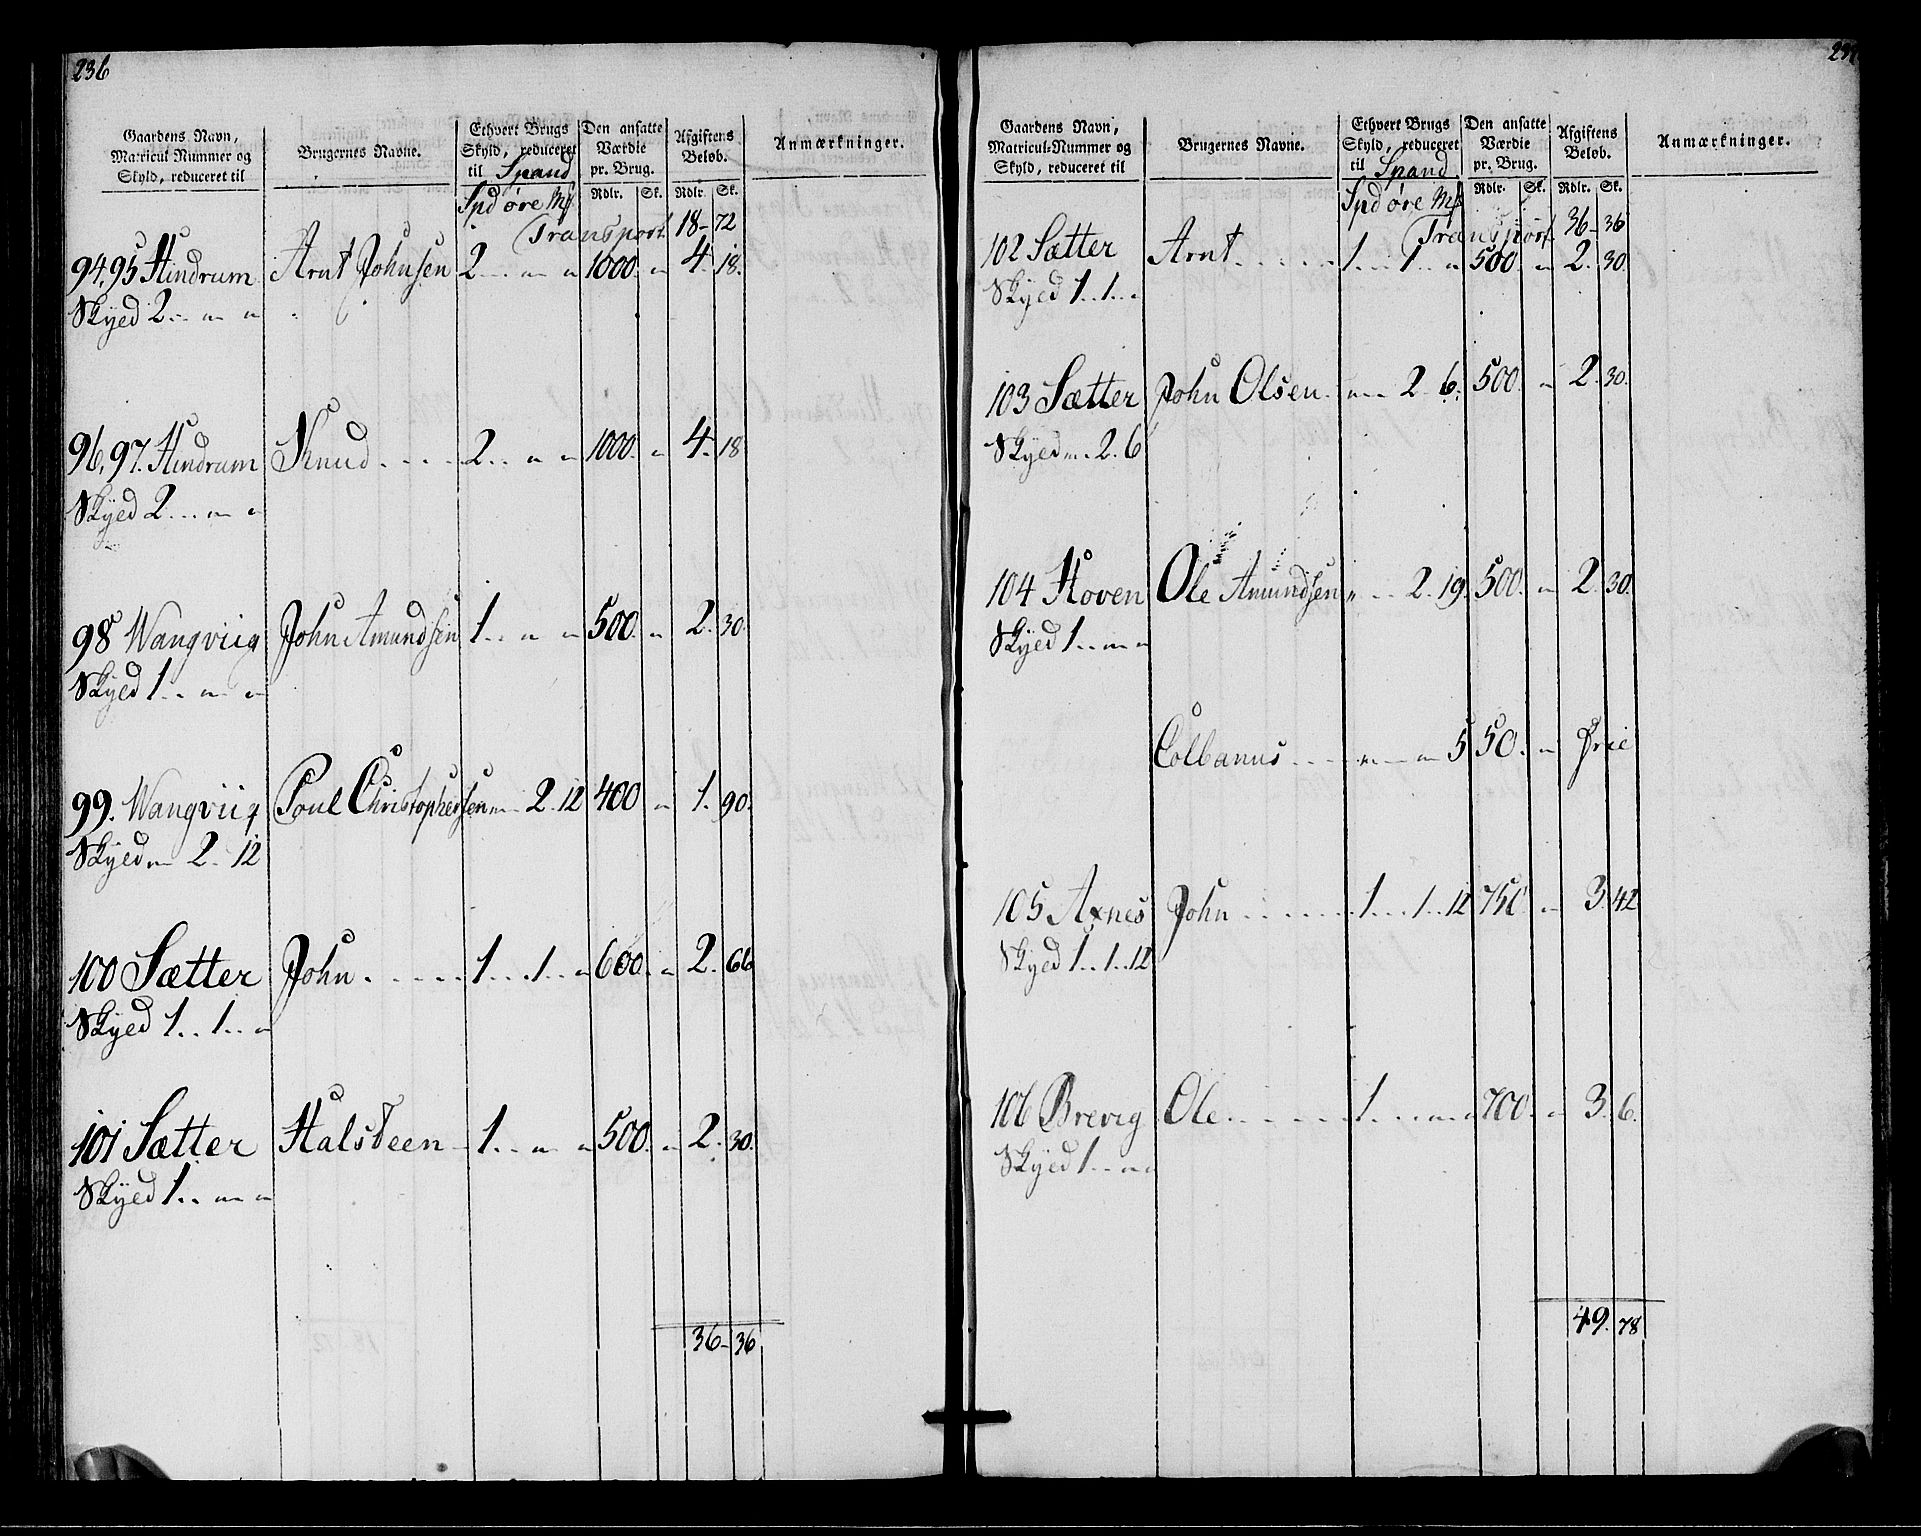 236
Gaardens Navn, Matricul-Nummer og Skyld, reduceret til
Brugernes Navne.
Ethvert Brugs Skyld, reduceret til Spand
Den ansatte Værdie pr. Brug.
Afgiftens Beløb.
Anmærkninger.
Spd øre Mſ Rdlr. Sk. Rdlr. Sk.
Transport 18 - 72
94, 95 Hindrum Arnt Johnsen 2 . . „ „ 1000. „ 4. 18.
Skyed 2 . . „ „
96, 97. Hindrum Knud . . . . 2 . . „ „ 1000. „ 4. 18
Skyed 2 . . . „ „
98 Wangviig John Amundsen 1 . . „ „ 500. „ 2. 30.
Skyed 1 . . „ „
99. Wangviig Poul Christophersen „ 2. 12 400 „ 1. 90.
Skyed „ 2. 12
100 Sætter John . . . . . 1 . . 1 . . „ 600. „ 2. 66
Skyed 1 . . 1 . . „
101 Sætter Halsteen - 1 . . „ „ 500. „ 2. 30.
Skyed 1 . . „ „
36 - 36
237
Gaardens Navn, Matricul-Nummer og Skyld, reduceret til
Brugernes Navne.
Ethvert Brugs Skyld, reduceret til Spand
Den ansatte Værdie pr. Brug.
Afgiftens Beløb.
Anmærkninger.
Spd øre Mſ Rdlr. Sk. Rdlr. Sk.
Transport 36 - 36
102 Sætter Arnt . . . . . 1 . . 1 . . „ 500. „ 2. 30.
Skyed 1 . . 1 . . „
103 Sætter John Olsen. „ 2. 6. 500. „ 2. 30.
Skyed „ . 2. 6
104 Hoven Ole Amundsen „ . . 2. 19. 500. „ 2. 30.
Skyed 1 . . „ „
Colbanus . . . „ „ 5 50. „ Frie
105 Axnes John . . . . . . 1 . . 1 . . 12 750. „ 3. 42
Skyed 1 . . 1 . . 12
106 Brevig Ole . . . . . 1 . . „ „ 700. „ 3. 6.
Skyed 1 . . „ „
49. 78